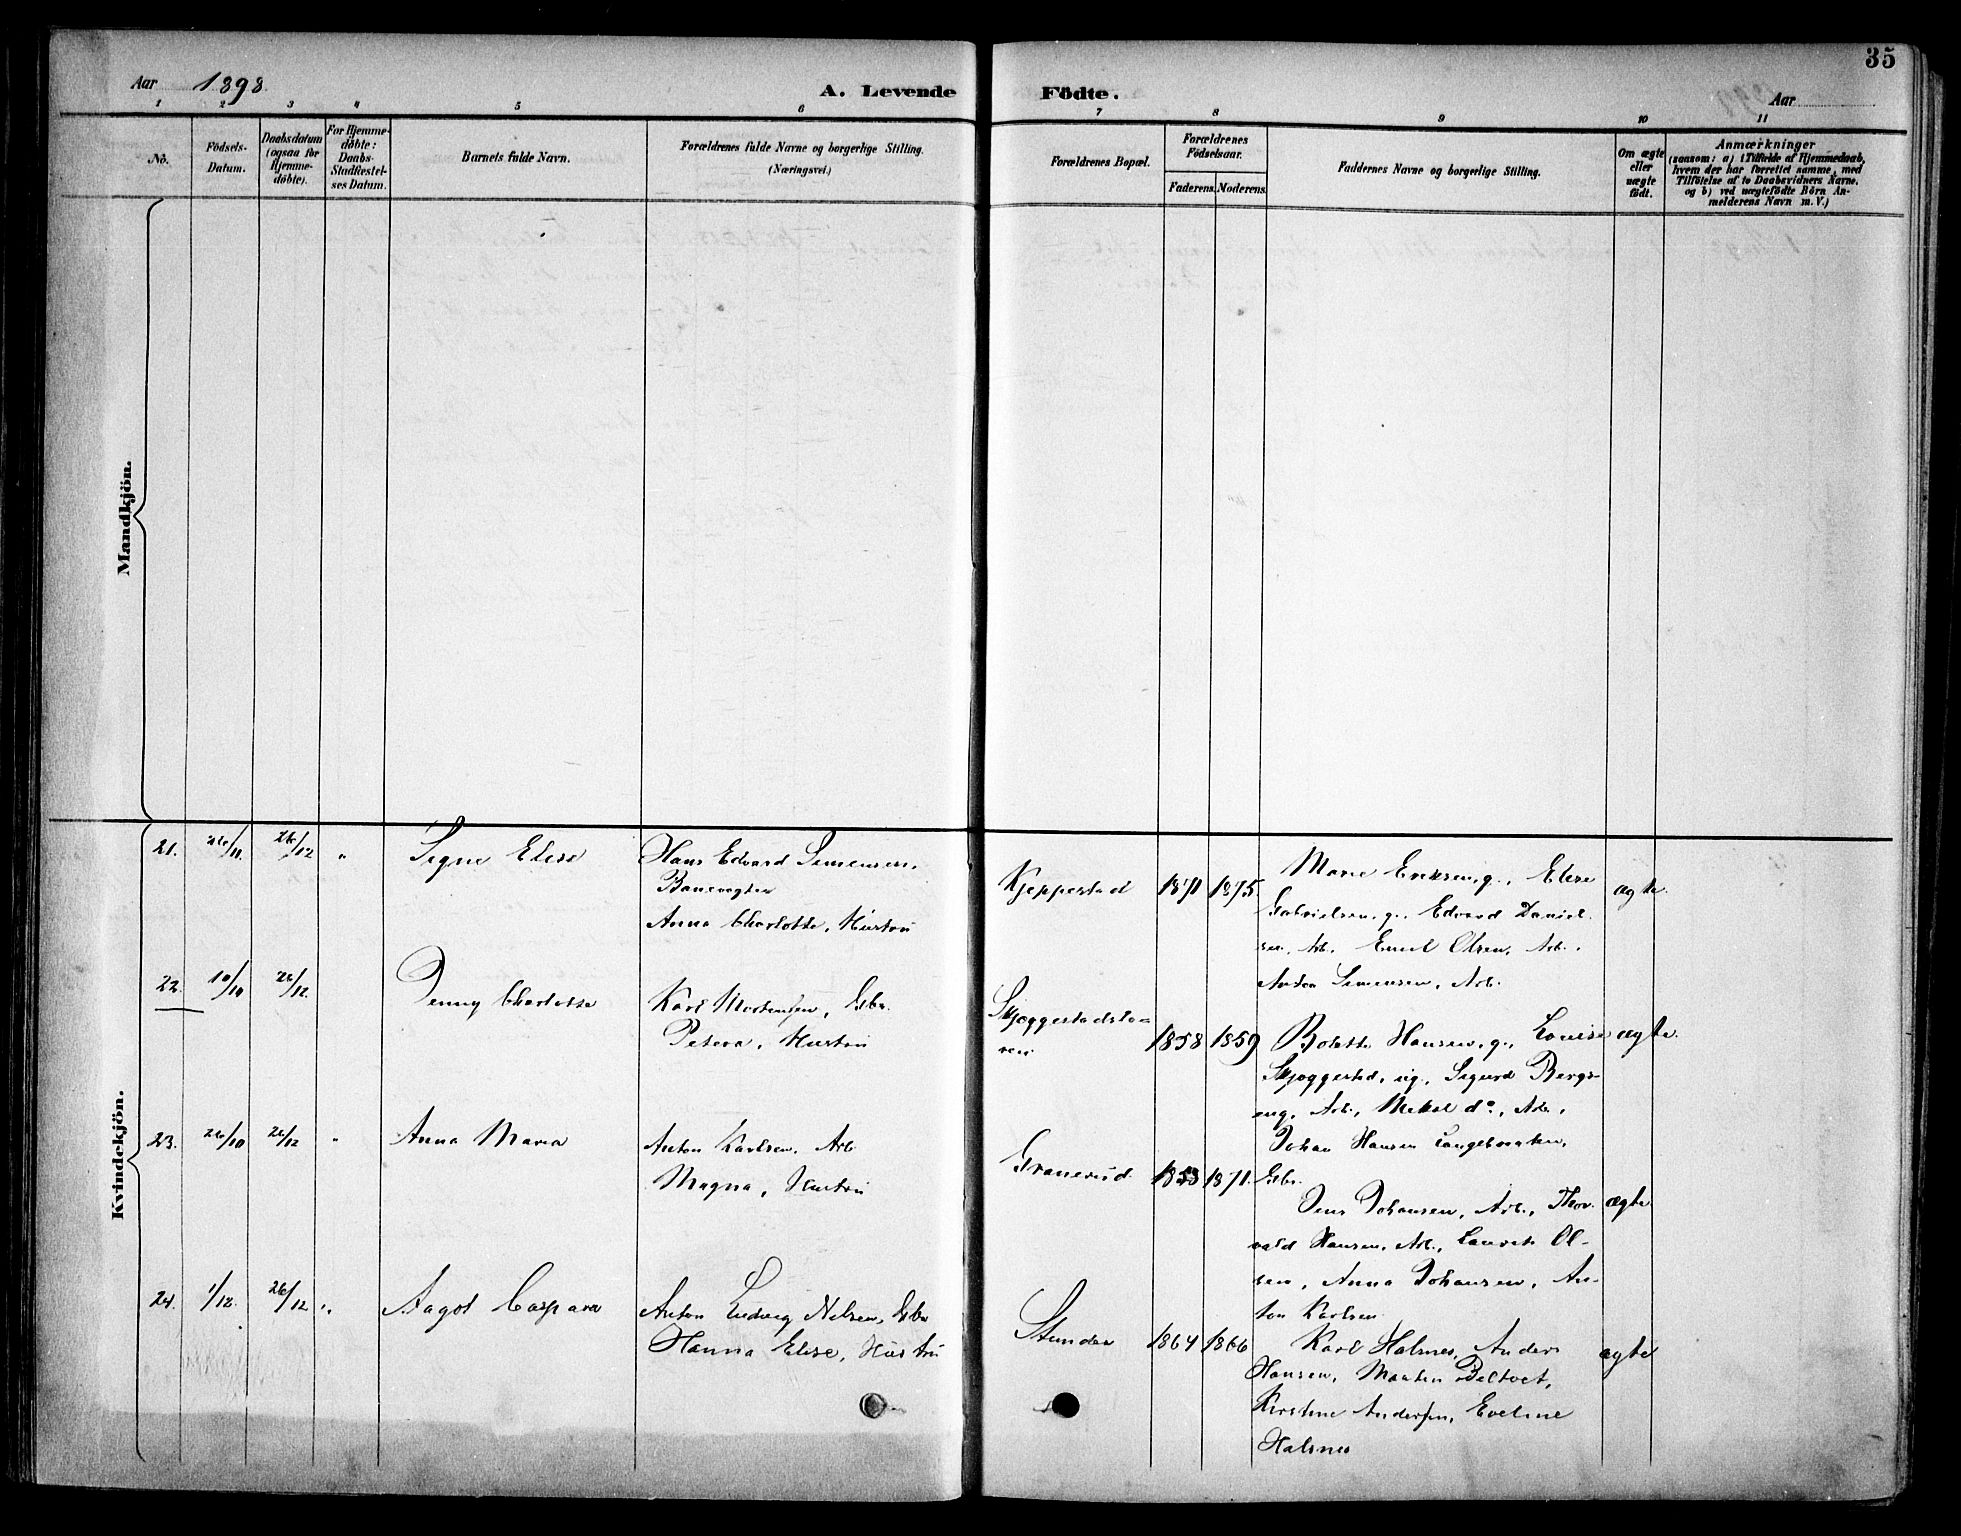 35
Aar 1898.
A. Levende Födte.
Aar
1 2 3 4 5 6 7 8 9 10 11
No.
Födsels-
Datum.
Daabsdatum
(ogsaa for
Hjemme-
døbte).
For Hjemme-
døbte:
Daabs-
Stadfæstel-
ses Datum.
Barnets fulde Navn.
Forældrenes fulde Navne og borgerlige Stilling.
(Næringsvei.)
Forældrenes Bopæl.
Forældrenes
Födselsaar.
Faderens. Moderens.
Faddernes Navne og borgerlige Stilling.
Om ægte
eller
uægte
født.
Anmærkninger
(saasom: a) i Tilfælde af Hjemmedaab,
hvem der har forrettet samme, med
Tilföielse af to Daabsvidners Navne,
og b) ved uægtefödte Börn An-
melderens Navn m. V.)
Mandkjön.
Kvindekjön.
21. 26/11. 26/12 " Signe Elise
Hans Edvard Simensen,
Banevogter
Anna Charlotte, Hustru
Kjeppestad 1871 1875
Marie Eriksen, g., Elise
Gabrielsen, g., Edvard Daniel-
sen, Arb. Emil Olsen, Arb.,
Anton Simensen, Arb.
ægte.
22. 10/10 26/12. Jenny Charlotte
Karl Mortensen, Gbr.
Petera, Hustru
Skjeggestadsto-
ren 1858 1859
Bolette Hansen, g., Louise
Skjeggestad, ug., Sigurd Bergs-
eng, Arb., Mikal do., Arb.,
Johan Hansen Langebraaten,
Gbr.
ægte.
23. 26/10 26/12 " Anna Maria
Anton Karlsen, Arb
Magna, Hustru
Granerud. 1853 1871.
Jens Johansen, Arb., Thor-
vald Hansen, Arb., Laurits Ol-
sen, Anna Johansen, An-
ton Karlsen
ægte
24. 1/12. 26/12 " Aagot Caspara
Anton Ludvig Nilsen, Gbr
Hanna Elise, Hustru
Stunder 1864 1866
Karl Halsnes, Anders
Hansen, Marten Beltvet,
Kirstine Andersen, Eveline
Halsnes
ægte